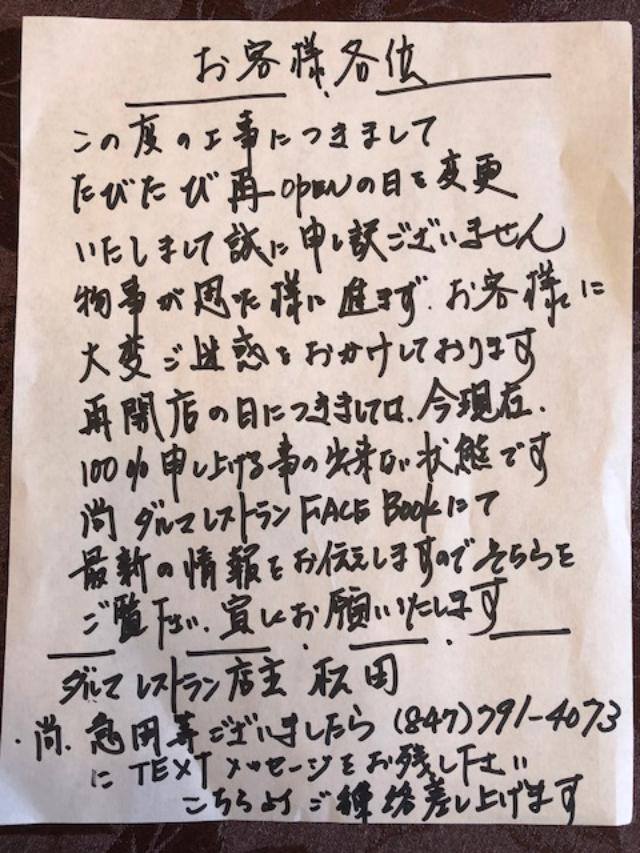 お客様各位
この度の工事につきまして
たびたび再OPENの日を変更
いたしまして誠に申し訳ございません
物事が思った様に進まず、お客様に
大変ご迷惑をおかけしております
再開店の日につきましては、今現在、
100%申し上げる事の出来ない状態です
尚 ダルマレストラン FACE Bookにて
最新の情報をお伝えしますのでそちらを
ご覧下さい、宜しくお願いいたします
ダルマレストラン店主 松田
・尚、急用等ございましたら (847)791-4073
に TEXT メッセージをお残し下さい
こちらより ご連絡差し上げます